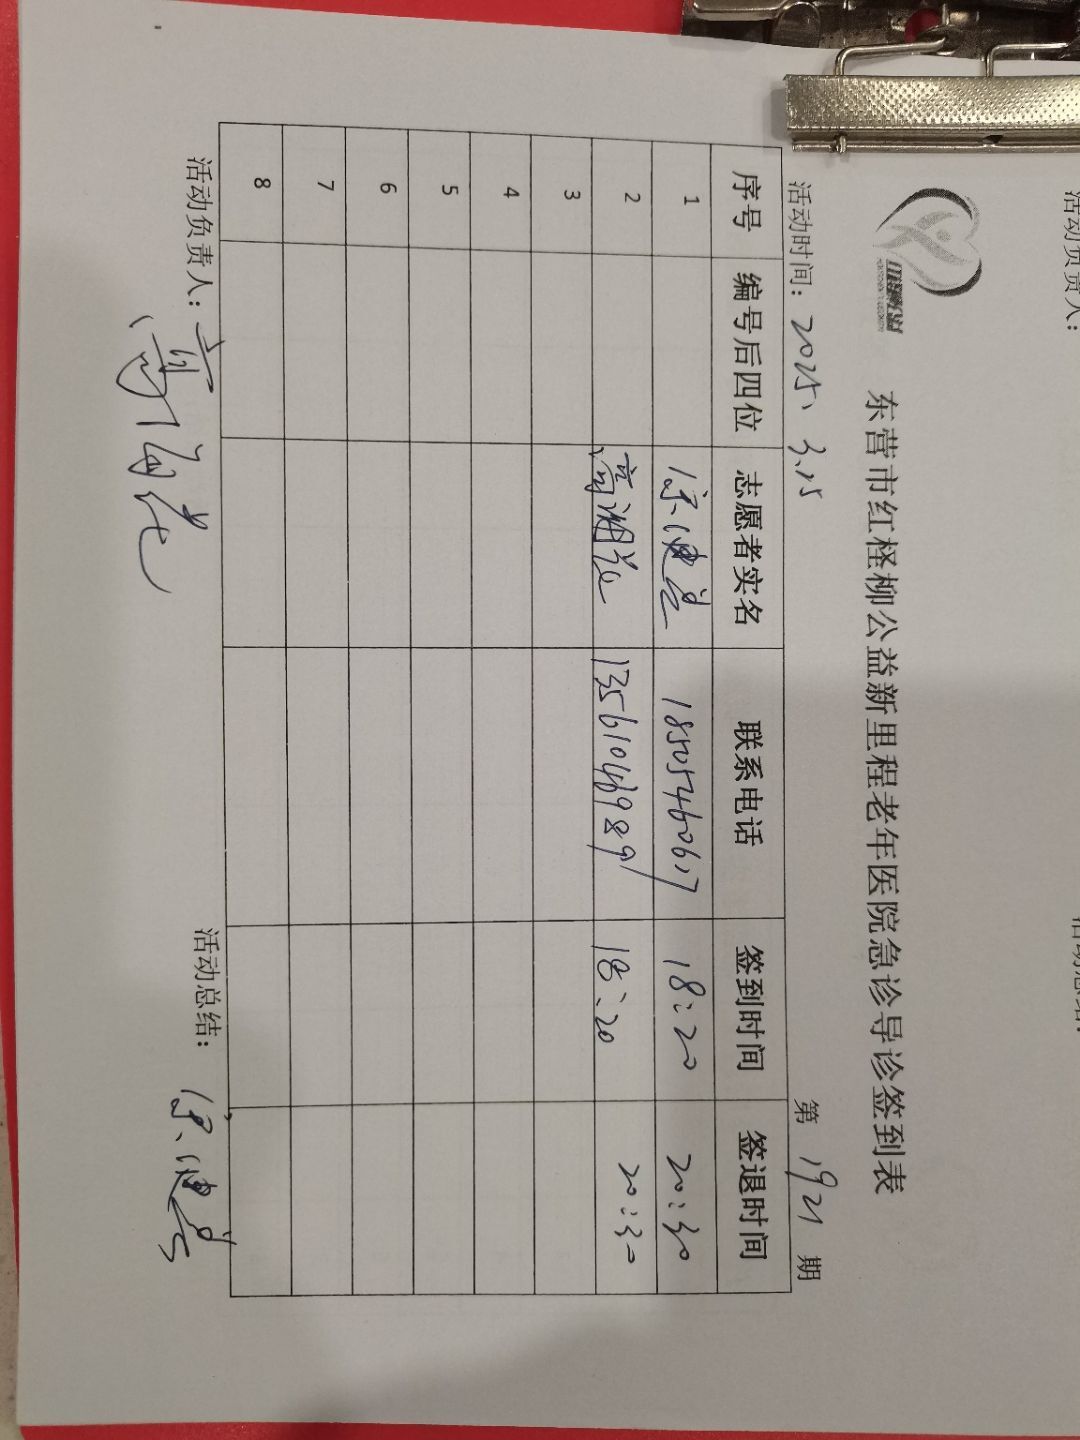 东营市红柽柳公益新里程老年医院急诊导诊签到表
活动时间：2025、3.15 第 1921 期
序号 编号后四位 志愿者实名 联系电话 签到时间 签退时间
1 18505460617 18:20 20:30
2 高湘花 13561046989 18:20 20:30
3
4
5
6
7
8
活动负责人： 活动总结：
活动负责人：